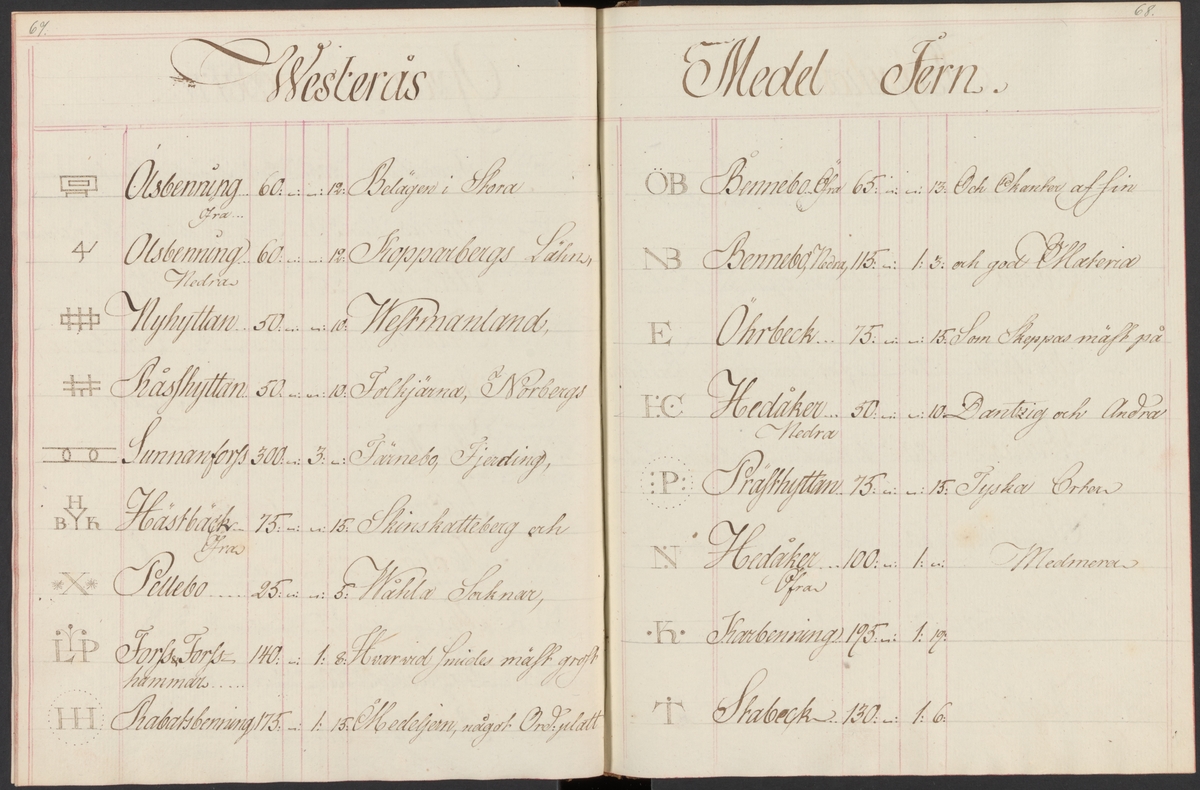 67.
Westerås
Olsbenning 60: „: „: 12: Belägen i Stora
Öfra
4
Olsbenning 60: „: „: 12: Kopparbergs Lähn,
Nedra
Nyhyttan 50: „: „: 10: Westmanland,
Råsshyttan 50: „: „: 10: Folkjärna, Norbergs
Sunnanforss 300: „: 3: „: Tärnebo, Fjerding,
H
BYK Hästbäck 75: „: „: 15: Skinskatteberg och
Öfra
*X* Pellebo 25: „: „: 5: Wåhla Socknar,
LP Forss, Forss- 140: „: 1: 8: Hvarvid smides mäst groft
hammar
HH Rabatsbenning 175: „: 1: 15: Medeljern, något Ord: platt
68.
Medel Jern.
ÖB Bennebo Öfra 65: „: „: 13: Och Chanter af fin
NB Bennebo, Nedra, 115: „: 1: 3: och god Materia
E Öhrbeck 75: „: „: 15: Som Skeppas mäst på
EC Hedåker 50: „: „: 10: Dantzig och Andra
Nedra
:P: Prästhyttan 75: „: „: 15: Tyska Orter
N Hedåker 100: „: 1: „: Medmera
Öfra
·K· Karbenning 195: „: 1: 19:
T Skabeck 130: „: 1: 6: